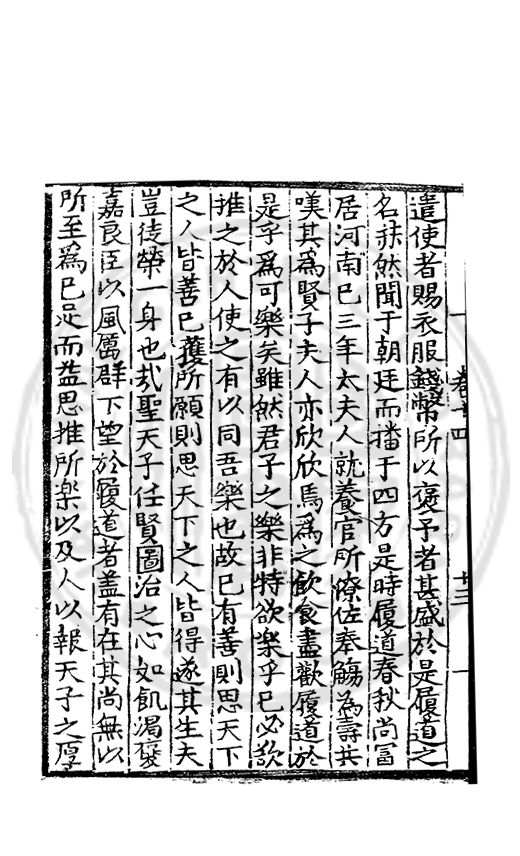 卷十四
十三
遣使者賜衣服錢幣所以褒予者甚盛於是履道之
名赫然聞于朝廷而播于四方是時履道春秋尚富
居河南已三年太夫人就養官所僚佐奉觴為壽共
嘆其為賢子夫人亦欣欣焉為之飲食盡歡履道於
是乎為可樂矣雖然君子之樂非特欲樂乎已必欲
推之於人使之有以同吾樂也故已有善則思天下
之人皆善已獲所願則思天下之人皆得遂其生夫
豈徒榮一身也哉聖天子任賢圖治之心如飢渴褒
嘉良臣以風厲群下望於履道者盖有在其尚無以
所至為已足而益思推所楽以及人以報天子之厚